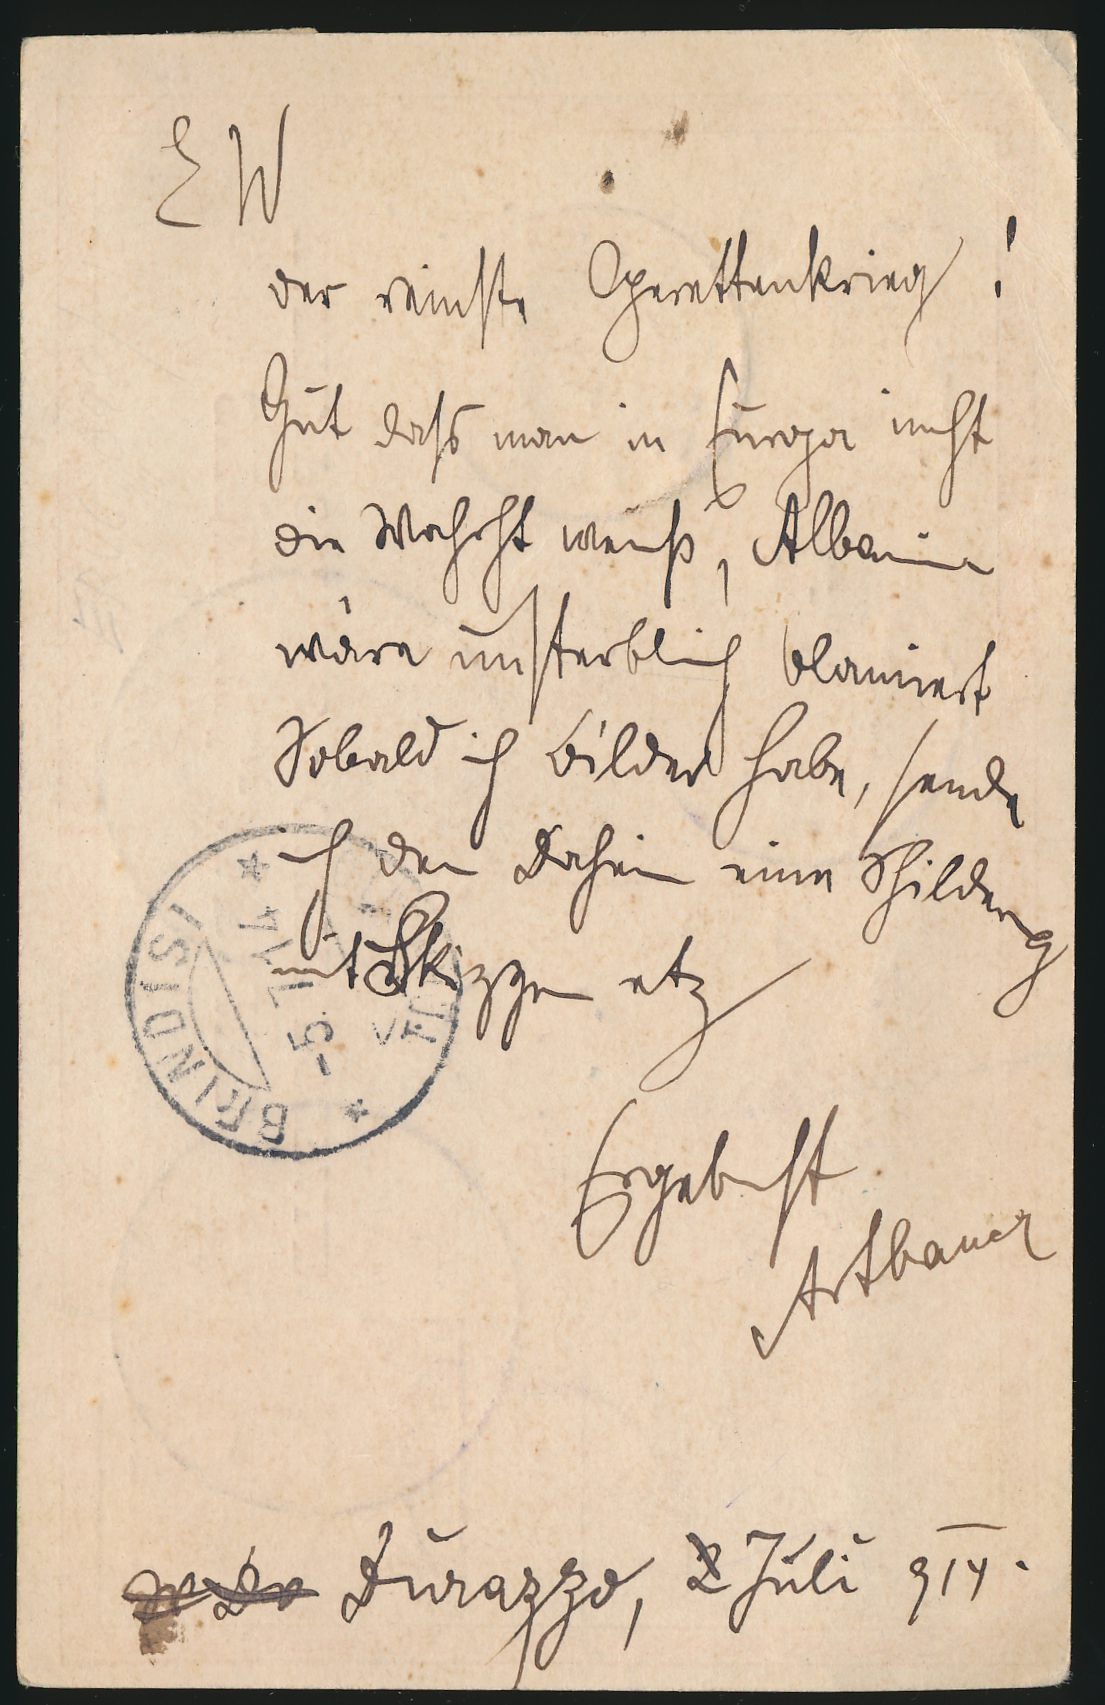 EW
der reinste Operettenkrieg!
Gut dass man in Europa nicht
die Wahrht weiß, Albanien
wäre unsterblich blamiert
Sobald ich Bilder habe, sende
ich dem Daheim eine Schilderg
mit Skizzen etz
Ergebenst
Artbauer
Durazzo, 2 Juli 914.
BRINDISI
-5. 7. 14